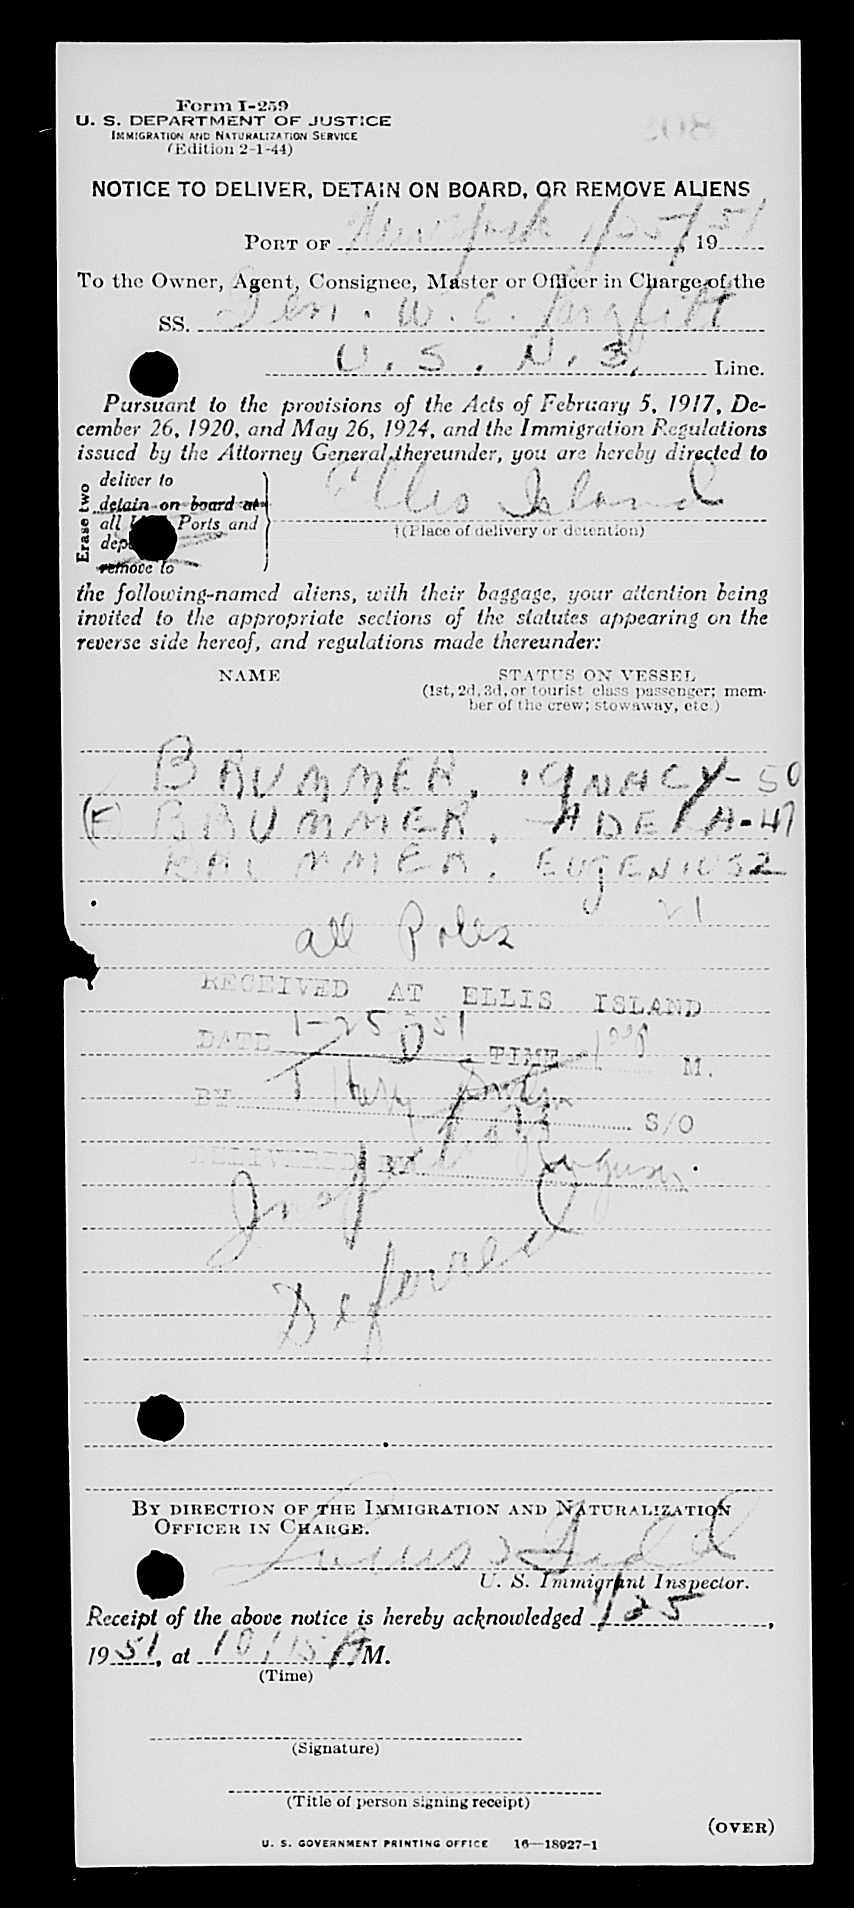 Form I-259
U. S. DEPARTMENT OF JUSTICE
IMMIGRATION AND NATURALIZATION SERVICE
(Edition 2-1-44)
NOTICE TO DELIVER, DETAIN ON BOARD, OR REMOVE ALIENS
PORT OF New York 1/25/51, 19
To the Owner, Agent, Consignee, Master or Officer in Charge of the
SS. Gen. W. C. Langfitt
U. S. N. S. Line.
Pursuant to the provisions of the Acts of February 5, 1917, De-
cember 26, 1920, and May 26, 1924, and the Immigration Regulations
issued by the Attorney General thereunder, you are hereby directed to
Erase two
deliver to
detain on board at
all Ports and
remove to
Ellis Island
†(Place of delivery or detention)
the following-named aliens, with their baggage, your attention being
invited to the appropriate sections of the statutes appearing on the
reverse side hereof, and regulations made thereunder:
NAME STATUS ON VESSEL
(1st, 2d, 3d, or tourist class passenger; mem-
ber of the crew; stowaway, etc.)
BRUMMER, IGNACY - 50
(F) BRUMMER, ADELA - 47
BRUMMER, EUGENIUSZ
21
all Poles
RECEIVED AT ELLIS ISLAND
DATE 1-25-51 TIME M.
BY S/O
DELIVERED BY
Inspector Ferguson
Deferred
BY DIRECTION OF THE IMMIGRATION AND NATURALIZATION
OFFICER IN CHARGE.
U. S. Immigrant Inspector.
Receipt of the above notice is hereby acknowledged 1/25,
1951, at 10/15 A M.
(Time)
(Signature)
(Title of person signing receipt)
(OVER)
U. S. GOVERNMENT PRINTING OFFICE 16—18927-1